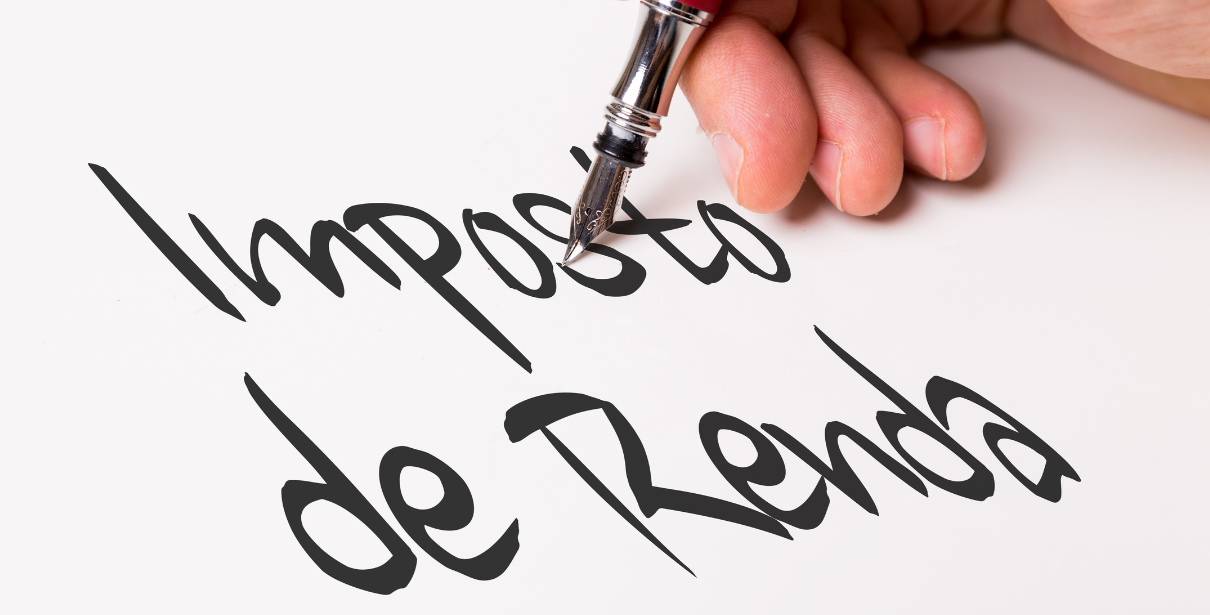 Imposto
de Renda